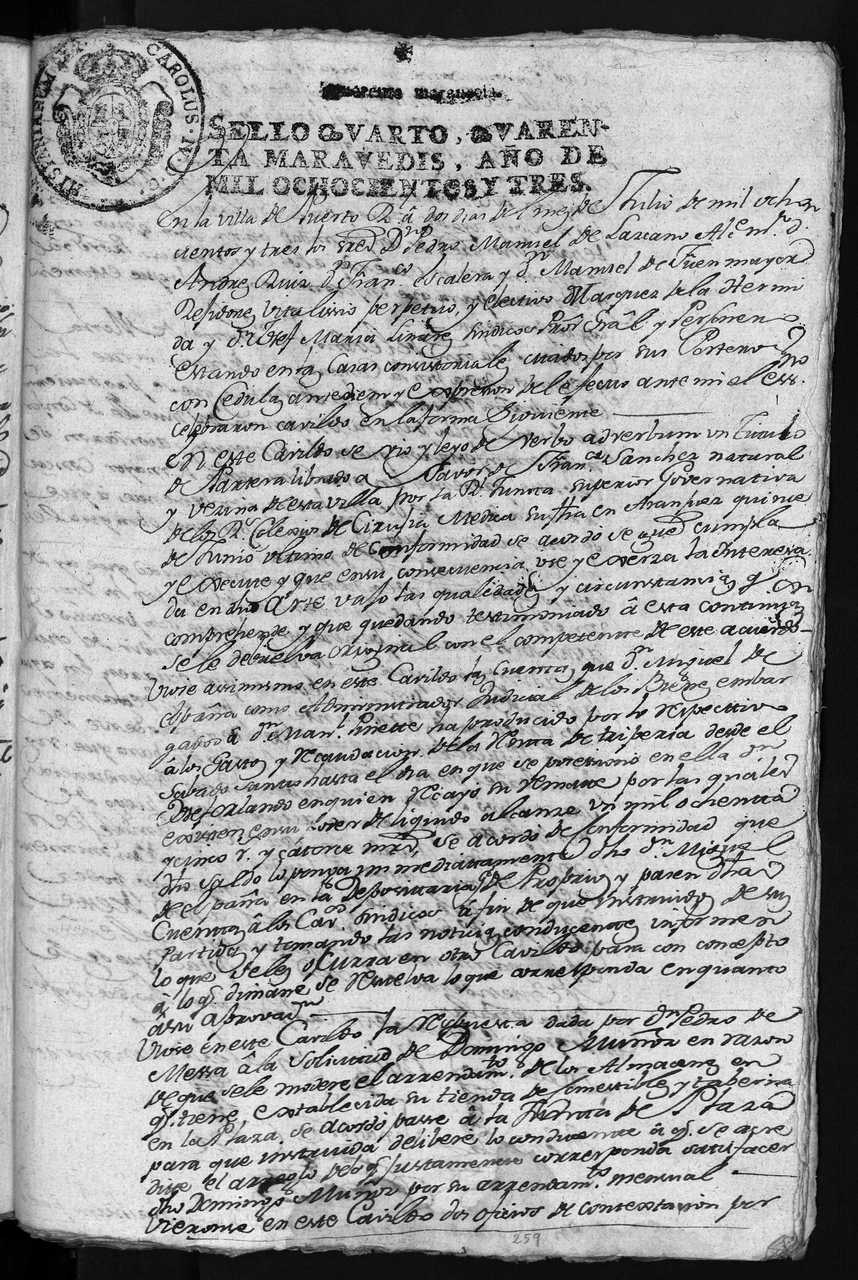 HISPANIARUM REX CAROLUS·IV·D·G·
Quarenta maravedis.
SELLO QVARTO, QVAREN-
TA MARAVEDIS, AÑO DE
MIL OCHOCIENTOS Y TRES.
En la villa de Puerto Rl. á dos dias del mes de Julio de mil ocho
cientos y tres los sres. Dn. Pedro Manuel de Lazcano Alce. mr. dn.
Andres Ruiz dn. Franco. Escalera y dn. Manuel de Fuenmayor
Rexidores vitalissio perpetuo, y electivo Marques de la Hermi
da y dn. Josef Maria Linares sindicos Proor. Gral y Perso nero
estando en las Casas consistoriales citados por sus Porteros
con Cedula antediem y expresion del efecto ante mi el essno.
celebraron cavildo en la forma siguiente
En este Cavildo se vio y leyo de verbo adverbum un Titulo
de Partera librado a favor de Franca. Sanchez natural
y vezina de esta villa por la Rl. Junta superior Governativa
de los Rs. Colexios de Cirujia Medica su fha en Aranjuez quince
de Junio ultimo de conformidad se acordo se gue. cumpla
y execute y que en su consecuencia use y exerza la Interesa
da en dho Arte vajo las qualidades y circunstancias qe. en
comprehende y que quedando testimoniado â esta continuazn.
se le debuelva original con el competente de este acuerdo
Viose assimismo en este Cavildo las Cuentas que dn. Miguel de
españa como Administrador Judicial de los Bienes embar
gados â dn. Manl. Pinette ha producido por lo respectivo
â los Gastos y Recaudacion de los Renta de triperia desde el
Sabado Santo hasta el dia en que se posesiono en ella dn.
Josef Orlando en quien recayó su remate por las quales
existen en su poder de liquido alcanze un mil ochenta
y cinco rs. y catorce mrs. se acordo de conformidad que
dho saldo lo ponga immediatamente dho dn. Miguel
de españa en la Depositaria de Proprios y pasen dhas
Cuentas â los Cavs. Sindicos â fin de que instruidos de sus
Partidas y tomando las noticias conducentes informen
lo que se les ofrezca en otro Cavildo para con concepto
a lo qe. dimane se resuelva lo que corresponda en quanto
â su aprovazn.
Viose en este Cavildo la respuesta dada por dn. Pedro de
Messa â la solicitud de Domingo Muñoz en razon
de que se le modere el arrendamto. de los Almacenes en
qe. tiene establecida su tienda de comestibles y taberna
en la Plaza se acordo passe â la Junta de Plaza
para que instruida delibere lo conducente â qe. se acre
dite el arreglo de lo qe. justamente corresponda satisfacer
dho Domingo Muñoz por su arrendamto. mensual
Vieronse en este Cavildo dos oficios de contextacion por
259